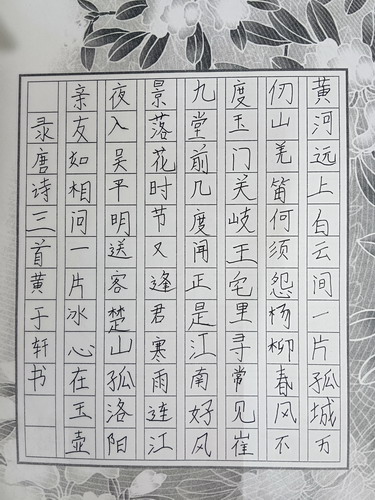 黄河远上白云间一片孤城万
仞山羌笛何须怨杨柳春风不
度玉门关岐王宅里寻常见崔
九堂前几度闻正是江南好风
景落花时节又逢君寒雨连江
夜入吴平明送客楚山孤洛阳
亲友如相问一片冰心在玉壶
录唐诗三首黄于轩书